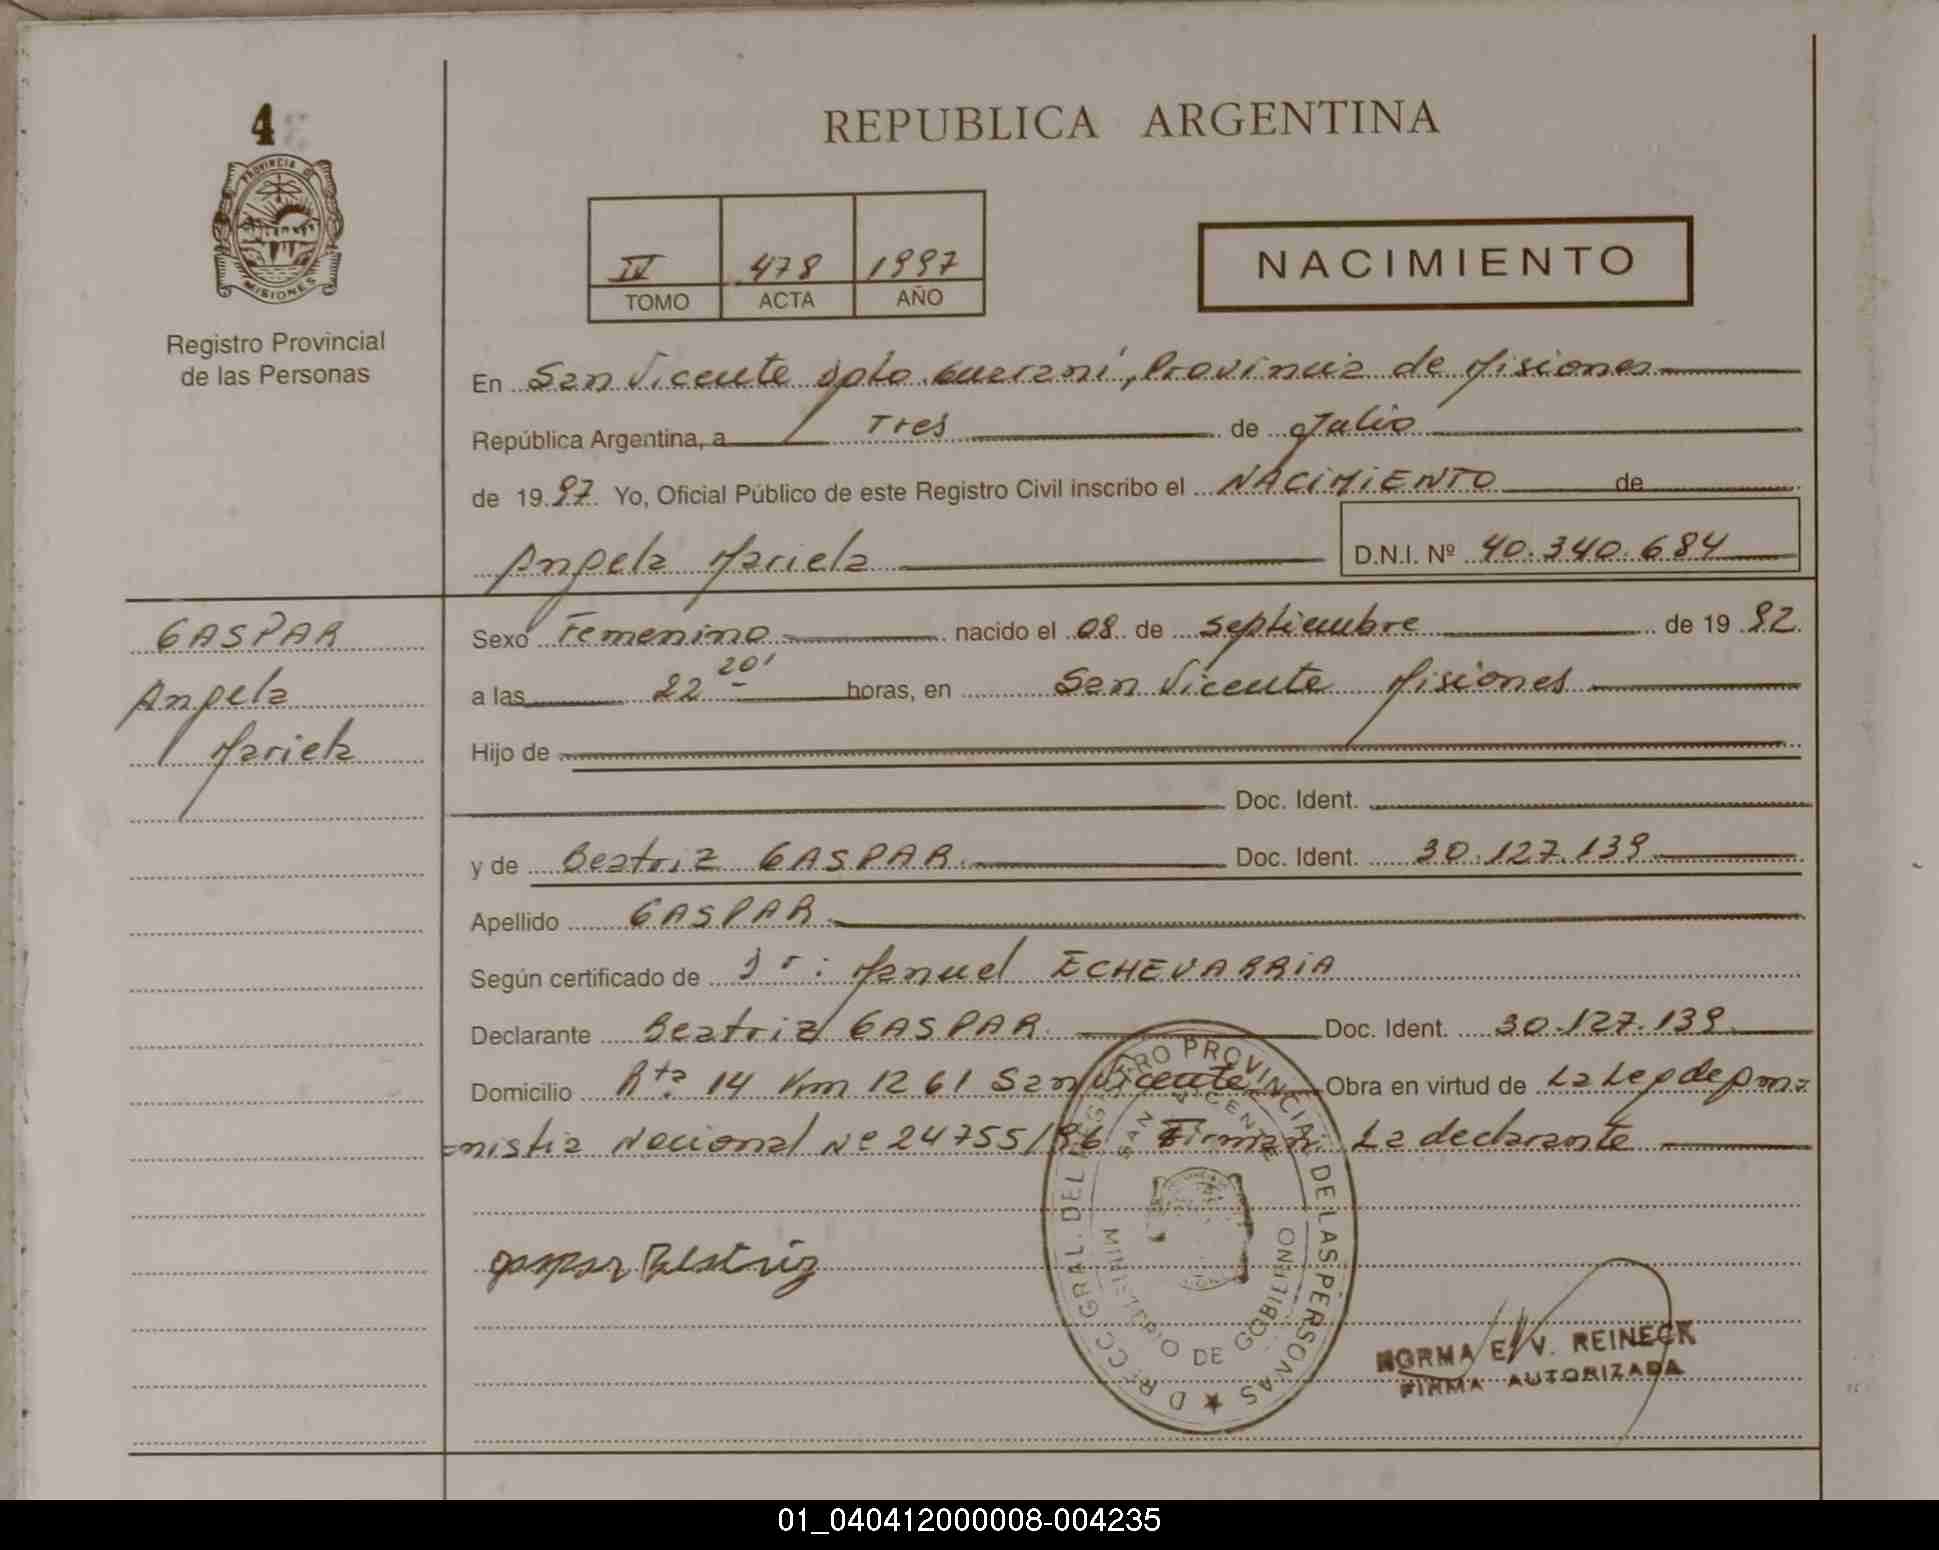 4
PROVINCIA DE
MISIONES
Registro Provincial
de las Personas
REPUBLICA ARGENTINA
IV 478 1997
TOMO ACTA AÑO
NACIMIENTO
En San Vicente Dpto. Guaraní, Provincia de Misiones
República Argentina, a Tres de Julio
de 19 97 Yo, Oficial Público de este Registro Civil inscribo el NACIMIENTO de
Angela Mariela D.N.I. Nº 40.340.684
GASPAR
Angela
Mariela
Sexo Femenino nacido el 08 de septiembre de 19 92
a las 22 20' horas, en San Vicente Misiones
Hijo de
Doc. Ident.
y de Beatriz GASPAR Doc. Ident. 30.127.139
Apellido GASPAR
Según certificado de Dr: Manuel ECHEVARRIA
Declarante Beatriz GASPAR Doc. Ident. 30.127.139
Domicilio Rta 14 Km 1261 San Vicente Obra en virtud de La Ley de Am
nistia Nacional Nº 24755/96 Firman: La declarante
Gaspar Beatriz
GRAL. DEL REGISTRO PROVINCIAL DE LAS PERSONAS
SAN VICENTE
DE
NORMA E. V. REINECK
FIRMA AUTORIZADA
01_040412000008-004235